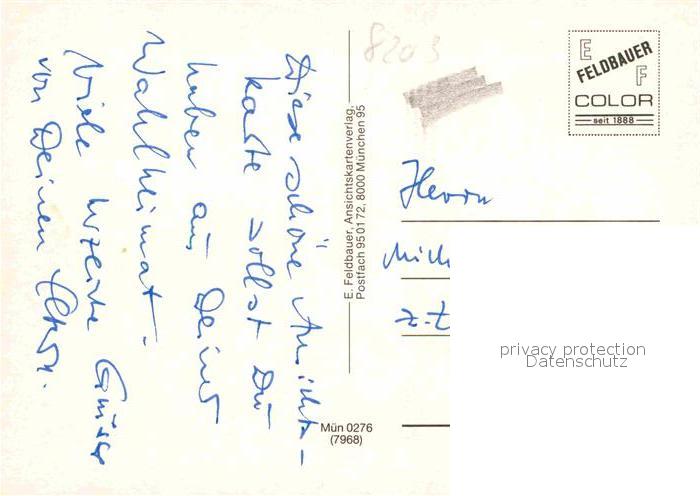 Diese schöne Ansichts-
karte sollst Du
haben aus Deiner
Wahlheimat.
Viele herzliche Grüsse
von Deinen Eltern.
E. Feldbauer, Ansichtskartenverlag,
Postfach 95 01 72, 8000 München 95
Mün 0276
(7968)
8203
E
FELDBAUER
F
COLOR
seit 1888
Herrn
Mich
z.Z
privacy protection
Datenschutz